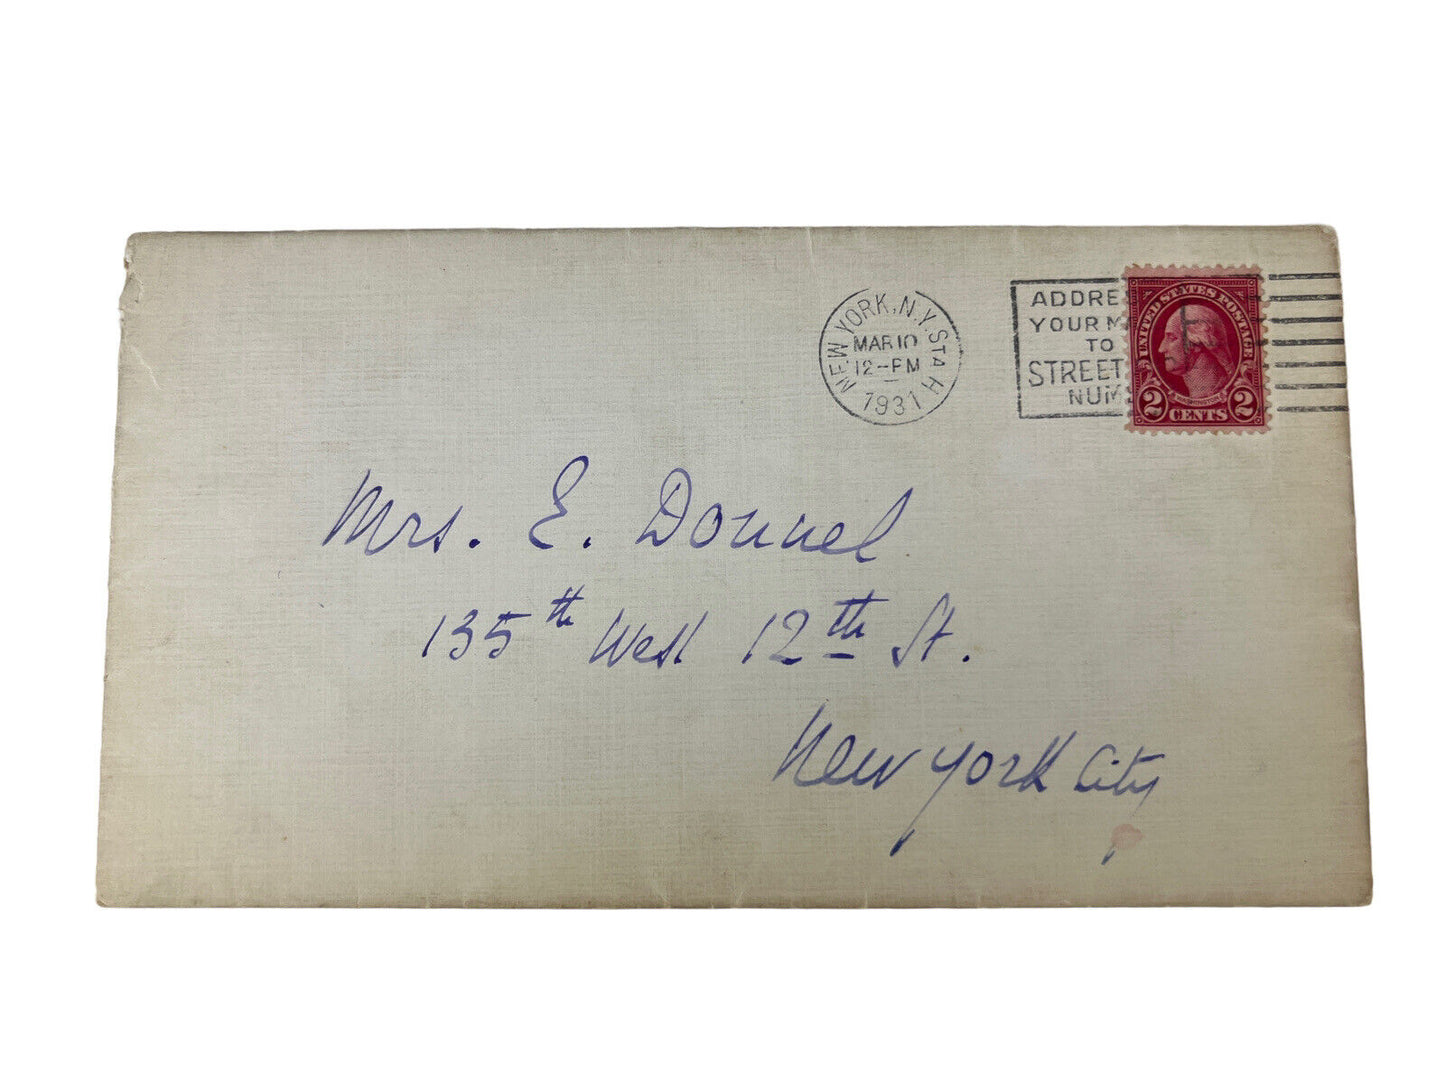 NEW YORK, N.Y. STA H
MAR 10
12-PM
1931
ADDRE
YOUR M
TO
STREET
NUM
UNITED STATES POSTAGE
WASHINGTON
2 CENTS 2
Mrs. E. Donnel
135th West 12th St.
New York City